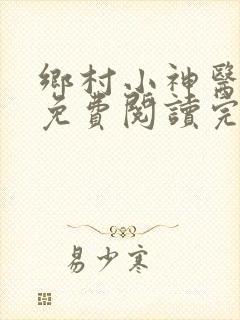 鄉村小神醫
免費閱讀完
易少寒